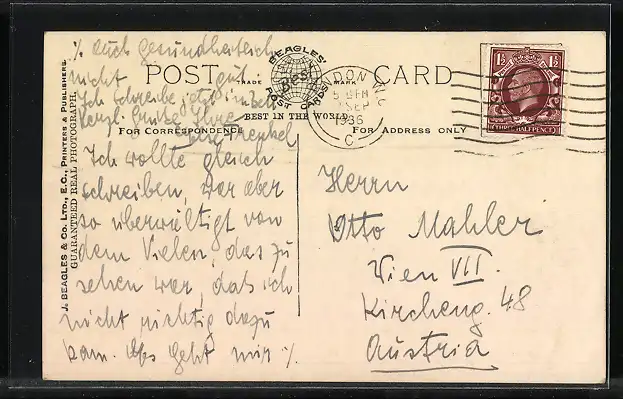 POST CARD
BEAGLES'
TRADE MARK
POST CARDS
BEST IN THE WORLD
For Correspondence
For Address only
J. BEAGLES & CO. LTD., E.C., PRINTERS & PUBLISHERS.
GUARANTEED REAL PHOTOGRAPH.
LONDON W.C.
SEP
1936
C
1½ 1½
THREE HALFPENCE
Ich wollte gleich
schreiben, war aber
so überwältigt von
dem Vielen, das zu
sehen war, dass ich
nicht richtig dazu
kam. Es geht mir ·/.
·/. auch gesundheitlich
nicht gut
Ich schreibe jetzt im Bett
Herzl. Grüße Ihre
Herrn
Otto Mahler
Wien VII.
Kircheng. 48
Austria